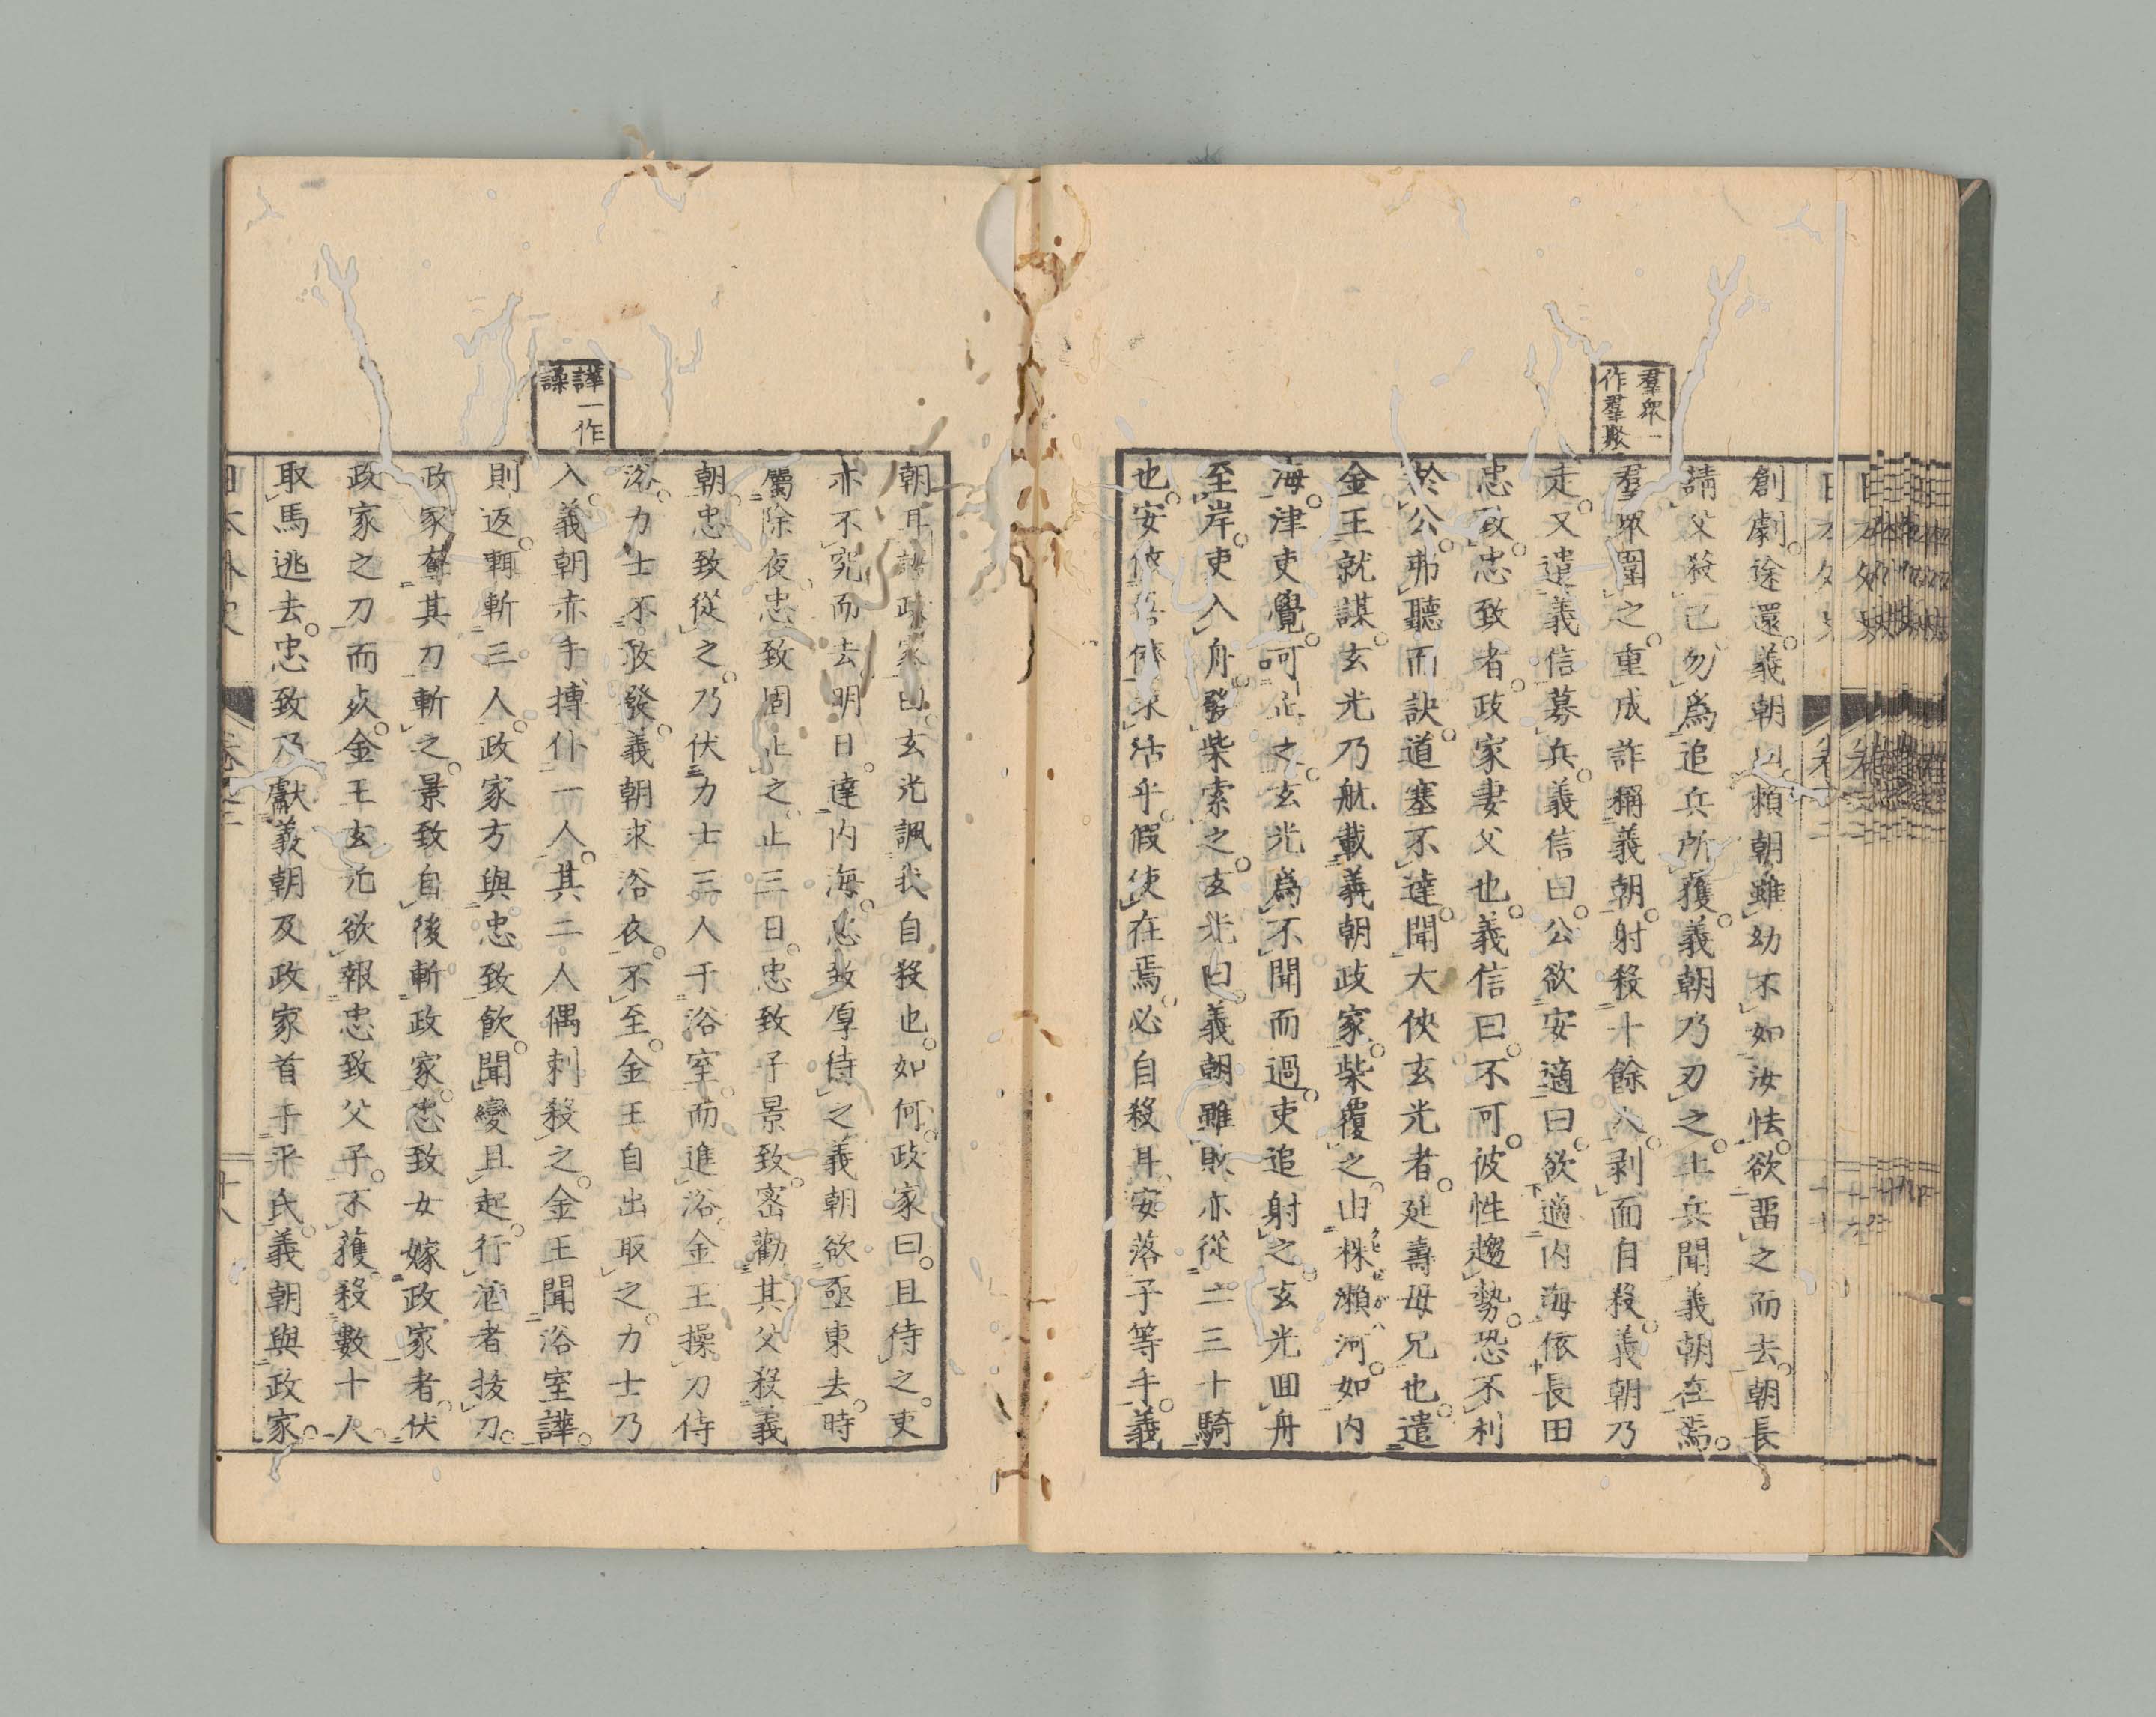 羣衆一
作羣聚
創劇途還義朝曰賴朝雖幼不如汝怯欲畱之而去朝長
請父殺己勿爲追兵所獲義朝乃刃之土兵聞義朝在焉
羣衆圍之重成詐稱義朝射殺十餘人剥面自殺義朝乃
走又遣義信募兵義信曰公欲安適曰欲適内海依長田
忠致忠致者政家妻父也義信曰不可彼性趨勢恐不利
於公弗聽而訣道塞不達聞大俠玄光者延壽母兄也遣
金王就謀玄光乃航載義朝政家柴覆之由株瀨河如内
海津吏覺呵止之玄光爲不聞而過吏追射之玄光回舟
至岸吏入舟發柴索之玄光曰義朝雖敗亦從二三十騎
也安依吾儕求活乎假使在焉必自殺耳安落子等手義
譁一作
譟
朝耳語政家曰玄光諷我自殺也如何政家曰且待之吏
亦不究而去明日達内海忠致厚待之義朝欲亟東去時
屬除夜忠致固止之止三日忠致子景致密勸其父殺義
朝忠致從之乃伏力士三人于浴室而進浴金王操刀侍
浴力士不敢發義朝求浴衣不至金王自出取之力士乃
入義朝赤手搏仆一人其二人偶刺殺之金王聞浴室譁
則返輙斬三人政家方與忠致飲聞變且起行酒者拔刀
政家奪其刀斬之景致自後斬政家忠致女嫁政家者伏
政家之刀而死金王玄光欲報忠致父子不獲殺數十人
取馬逃去忠致乃獻義朝及政家首于平氏義朝與政家
日本外史 卷之二 十八